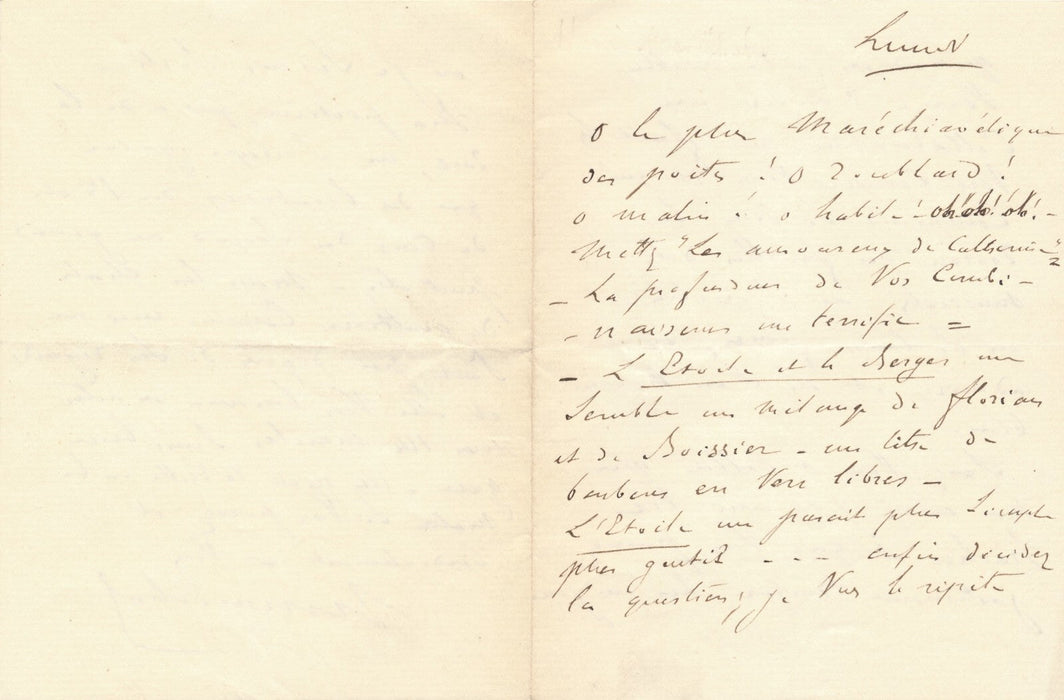 Lundi
O le plus Maréchiavélique
des poètes ! O Roublard !
o malin ! o habile ! oh! oh! oh! -
Mettez "Les amoureux de Catherine"
- La profondeur de Vos Combi -
- naisons me terrifie =
- L'Etoile et le Berger me
semble un mélange de florian
et de Boissier - un titre de
bonbons en Vers libres -
L'Etoile me parait plus simple
plus gentil - - - enfin décidez
la question, je Vous le répète